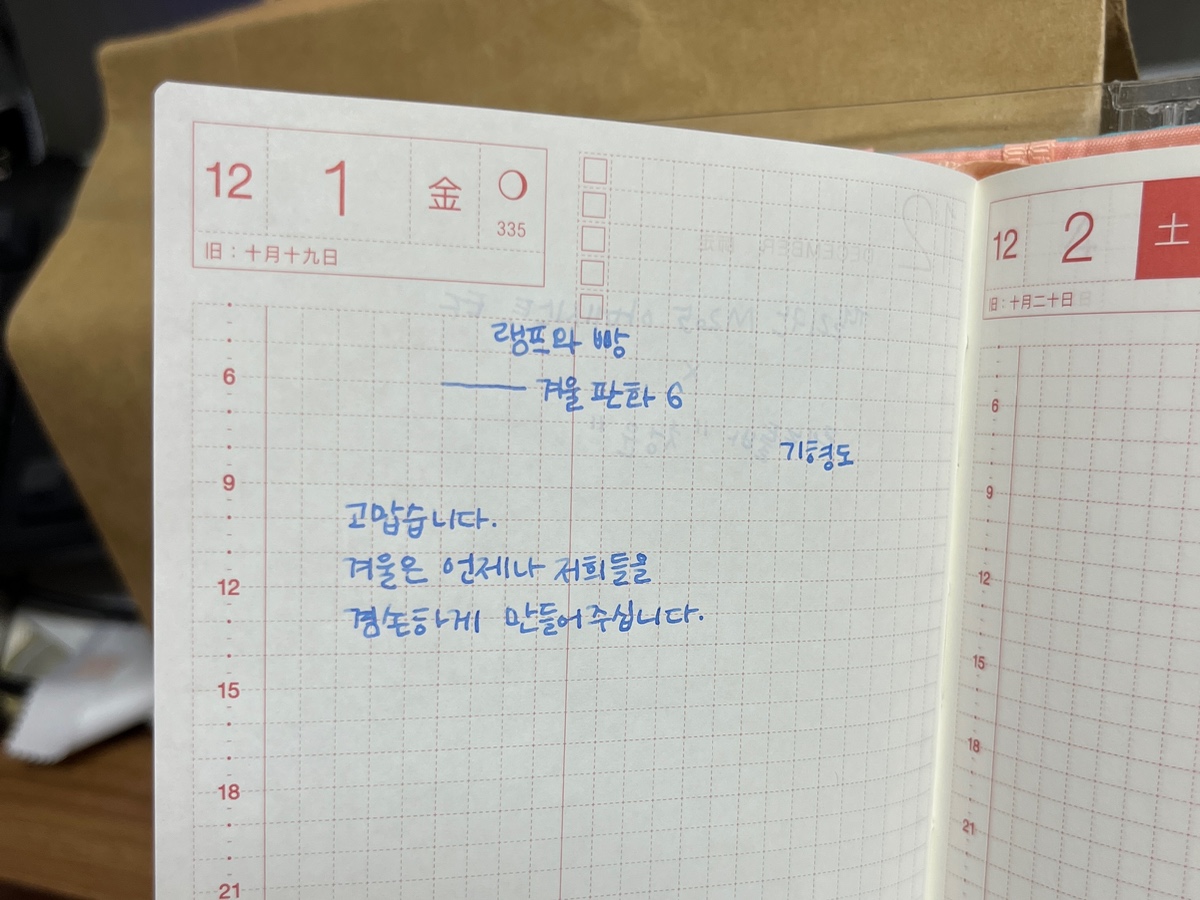 12 1 金
335
旧：十月十九日
랭프와 빵
── 겨울 판화 6
기형도
고맙습니다.
겨울은 언제나 저희들을
겸손하게 만들어주십니다.
6
9
12
15
18
21
12 2 土
旧：十月二十日
6
9
12
15
18
21